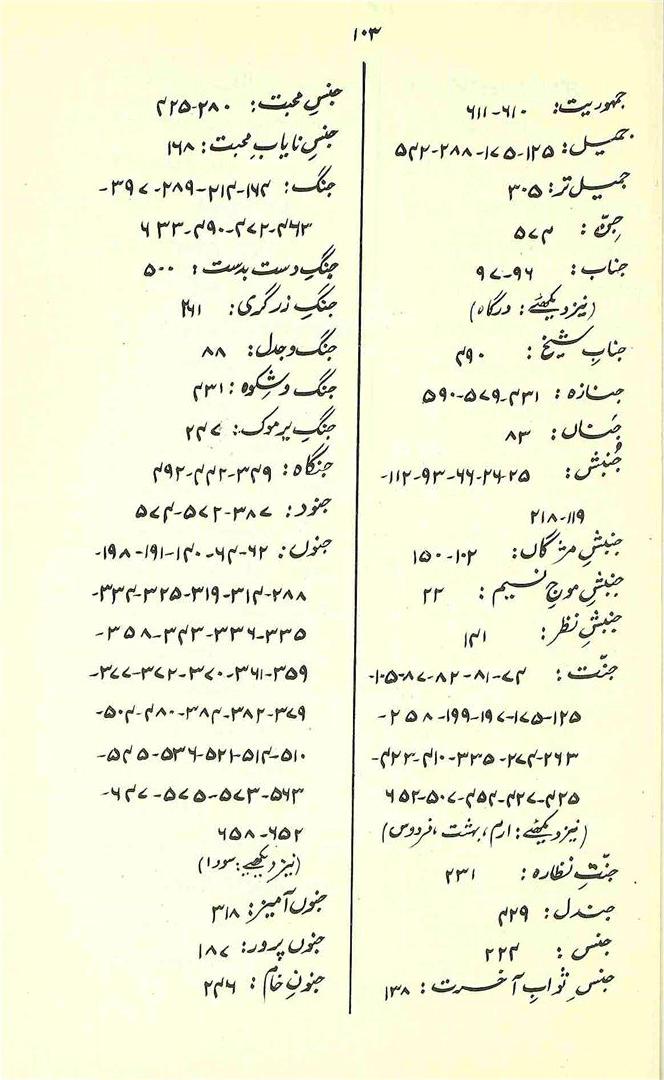 ۱۰۳
جمہوریت: ۶۱۰-۶۱۱
جمیل: ۱۲۵-۱۷۵-۲۸۸-۵۴۲
جمیل تر: ۳۰۵
جرّہ: ۵۷۴
جناب: ۹۶-۹۷
(نیز دیکھئے: درگاہ)
جنابِ شیخ: ۴۹۰
جنازہ: ۴۳۱-۵۷۹-۵۹۰
جَناں: ۸۳
جُنبش: ۲۵-۲۶-۶۶-۹۳-۱۱۲-
۱۱۹-۲۱۸
جنبشِ مژگاں: ۱۰۲-۱۵۰
جنبشِ موجِ نسیم: ۲۲
جنبشِ نظر: ۱۴۱
جنّت: ۷۴-۸۱-۸۲-۸۷-۱۰۵-
۱۲۵-۱۷۵-۱۹۷-۱۹۹-۲۵۸-
۲۶۳-۲۷۴-۳۳۵-۴۱۰-۴۲۳-
۴۲۵-۴۲۷-۴۵۴-۵۰۷-۶۵۲
(نیز دیکھئے: ارم، بہشت، فردوس)
جنّتِ نظارہ: ۲۳۱
جندل: ۴۲۹
جنس: ۲۲۴
جنسِ ثوابِ آخرت: ۱۳۸
جنسِ محبت: ۲۸۰-۴۲۵
جنسِ نایابِ محبت: ۱۶۸
جنگ: ۱۶۴-۲۱۴-۲۸۹-۳۹۷-
۴۶۳-۴۷۲-۴۹۰-۶۳۳
جنگِ دست بدست: ۵۰۰
جنگِ زرگری: ۲۶۱
جنگ و جدل: ۸۸
جنگ و شکوہ: ۴۳۱
جنگِ یرموک: ۲۴۷
جنگاہ: ۳۴۹-۴۴۲-۴۹۲
جنود: ۳۸۷-۵۷۲-۵۷۴
جنوں: ۶۲-۶۴-۱۴۰-۱۹۱-۱۹۸-
۲۸۸-۳۱۴-۳۱۹-۳۲۵-۳۳۴-
۳۳۵-۳۳۶-۳۴۳-۳۵۸-
۳۵۹-۳۶۱-۳۷۰-۳۷۲-۳۷۷-
۳۷۹-۳۸۲-۳۸۴-۴۸۰-۵۰۴-
۵۱۰-۵۱۴-۵۲۱-۵۳۶-۵۴۵-
۵۶۳-۵۷۳-۵۷۵-۶۴۷-
۶۵۲-۶۵۸
(نیز دیکھیے: سودا)
جنوں آمیز: ۳۱۸
جنوں پرور: ۱۸۷
جنونِ خام: ۲۴۶